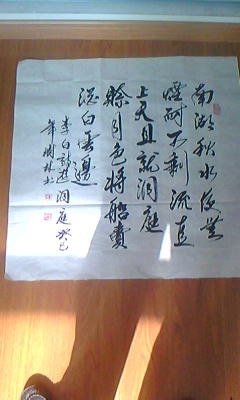 南湖秋水夜無
煙耐可乘流直
上天且就洞庭
賒月色將船買
酒白雲邊
李白詩遊洞庭癸巳
年樹林书